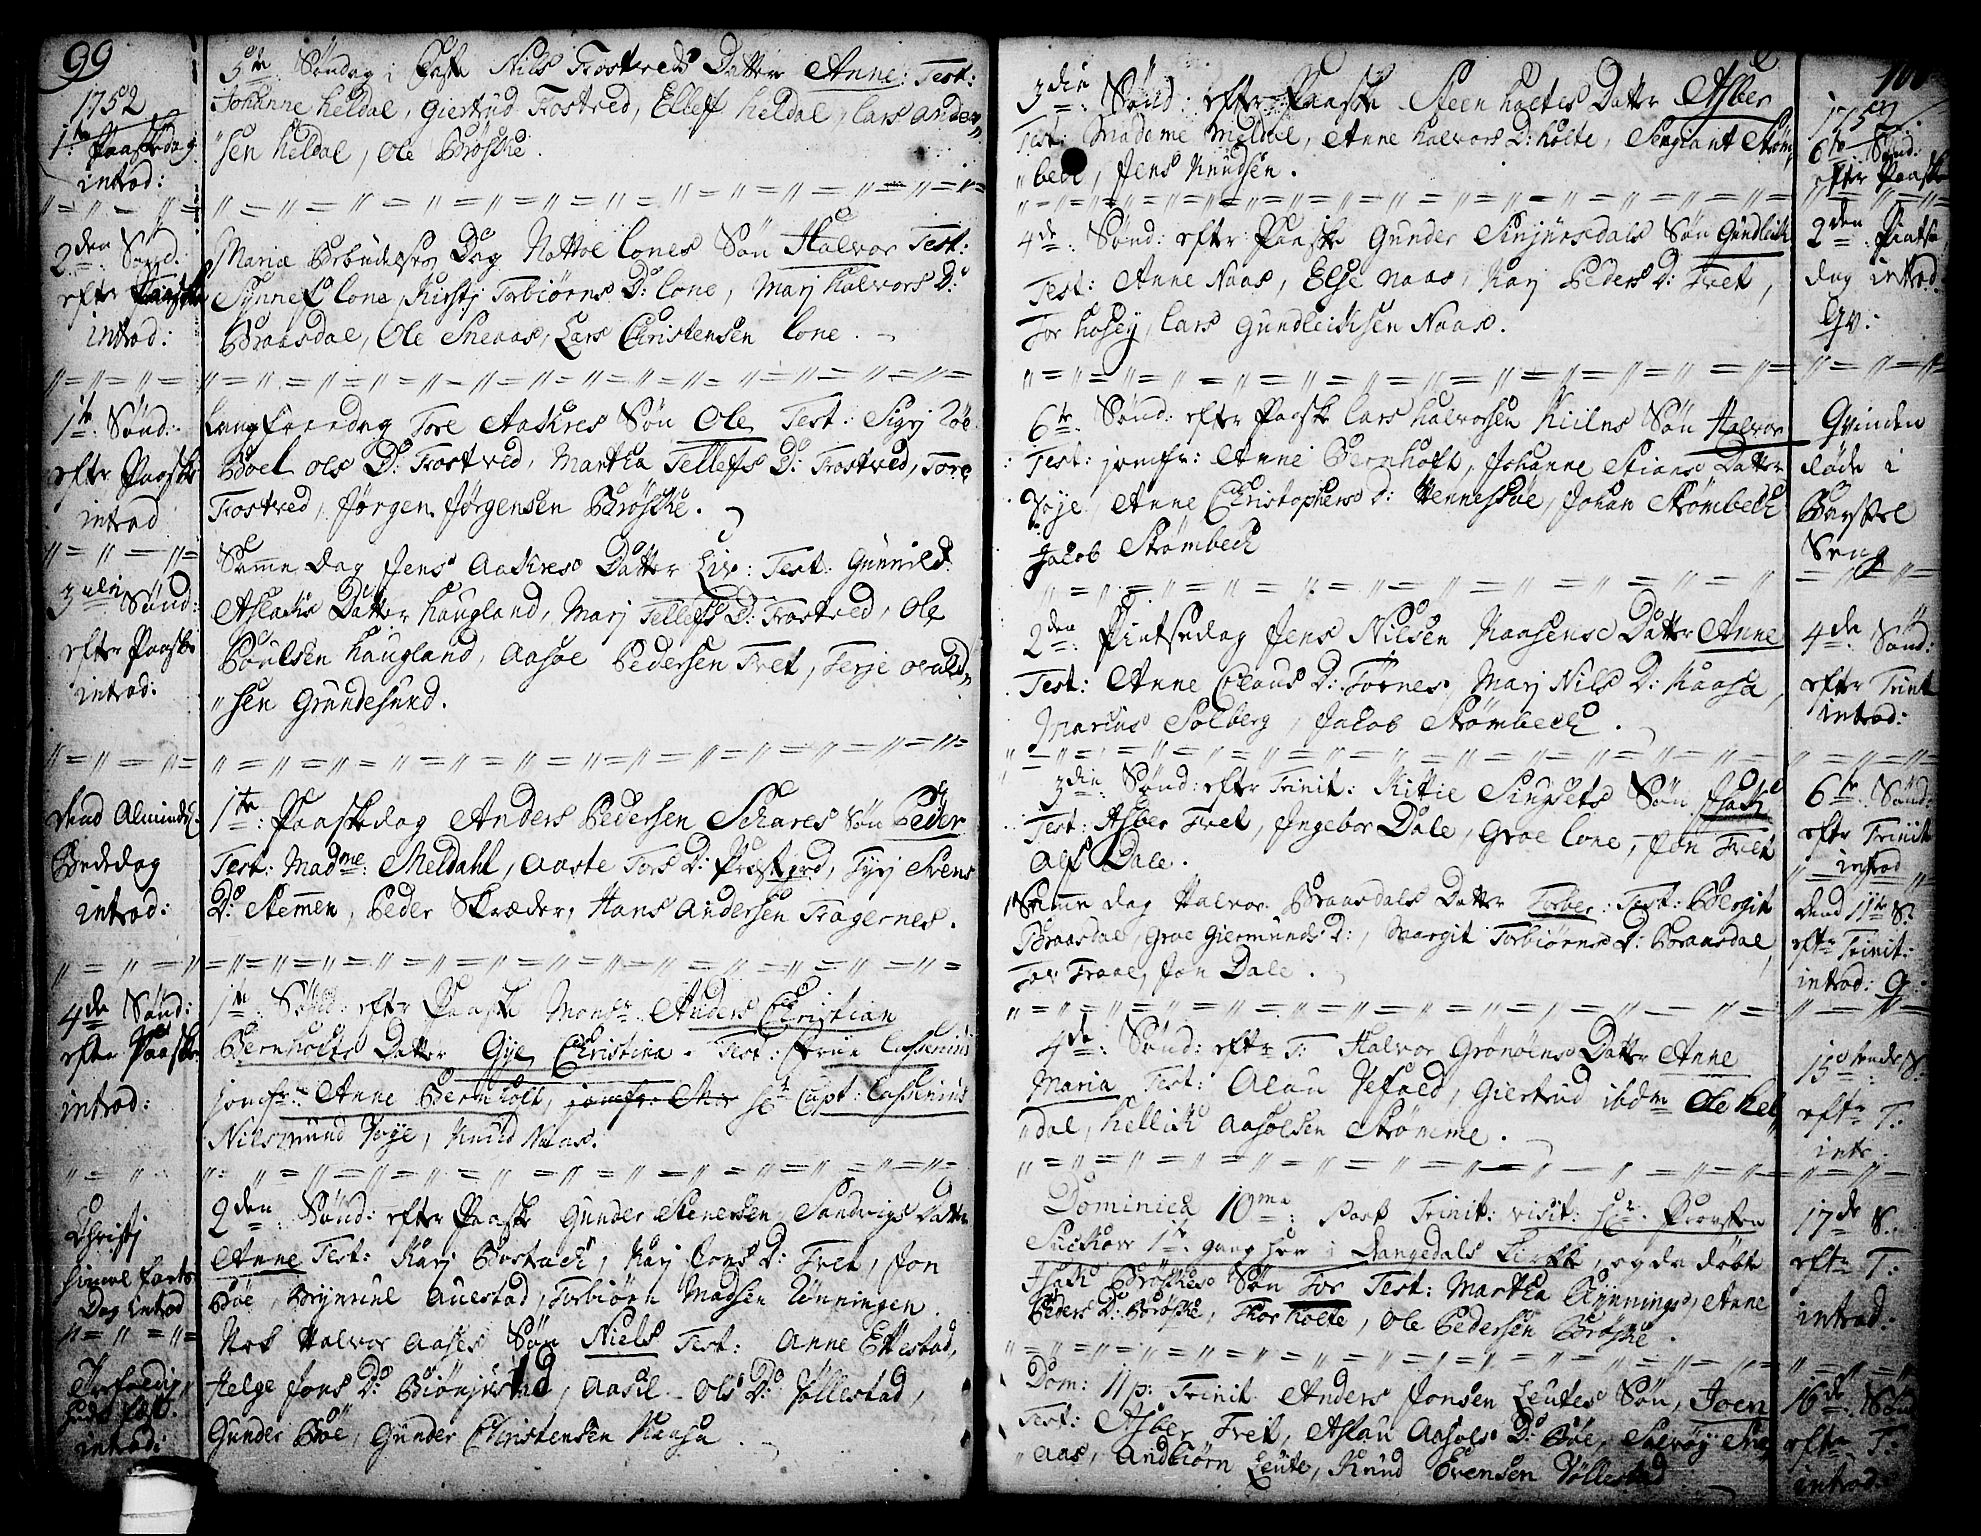 99
1752
1te Paaskedag
introd:
2den Sønd.
efter Paaske
introd:
1te Sønd:
efter Paaske
introd
3die Sønd:
efter Paaske
introd:
dend Alminde:
Bededag
introd:
4de Sønd:
efter Paaske
introd:
Christj
himmel farts
Dag introd
introd:
5te Søndag i Faste Nils Trostveds Datter Anne: Test:
Johanne heldal, Giertrud Trostved, Elleff heldal, lars Ander,,
,,sen heldal, Ole Brøske.
Mariæ Bebudelses Dag Nottoe lones Søn Halvor Test:
Synnef lone, Kirstj Torbiørns D: lone, Marj halvors D:
Braasdal, Ole Sneaas, Lars Christensen lone.
Langfreedag Tore Aakres Søn Ole, Test: Sigrj
Boel ols D: Trostved, Martha Tellefs D: Trostved, Tore
Trostved, Jørgen Jørgensen Brøske.
Samme Dag Jens Aakres Datter Liv: Test: Gunnild
Aslachs Datter haugland, Marj Tellefs D: Trostved, Ole
Poulsen haugland, Aasoe Pedersen Tvet, Terje ovald,,
,,sen Grundesund.
1te: Paaskedag Anders Pedersen Schares Søn Peder
Test: Madme: Meldahl, Aaste Tors D: Præstgrd, Tyrj Svens
D: Stemmen, Peder Skræder, Hans Andersen Tragernes.
1te: Sønd: efter Paaske Monsr. Anders Christian
Bernholts Datter Gye Christina. Test: Frue Cassenius
jomfr: Anne Bernholt, Hr Capt: Cassenius
Nilsmund Voje, Knud Naas.
2den Sønd: efter Paaske Gunder Stenersen Sandvigs Datter
Anne Test: Karj Bostrach, Karj Jons D: Tvet, Jon
Bøe, Brynnil Auestad, Torbiørn Madsen Rønningen.
Nok Halvor Aases Søn Niels Test: Anne Ettestad,
Helge Jons D: Biønjustad, Aasil Ols D: Vøllestad,
Gunder Bøe, Gunder Christensen Kaasa.
3die Sønd: efter Paaske Steen holtes Datter Asber
Test: Madame Meldal, Anne halvors D: holte, Sergiant Strøm
,,bech, Jens Knudsen.
4de: Sønd: efter Paaske Gunder Sinjursdals Søn Gundleich
Test: Anne Naas, Else Naas, Karj Peders D: Tvet,
Tor hosey, Lars Gundleichsen Naas.
6te Sønd: efter Paaske Lars halvorsen Kiilns Søn Halvor
Test: jomfr: Anne Bernholt, Johanne Stians Datter
Voje, Anne Christophers D: Henneseie, Johan Strømbech
Jacob Strømbech
2den: Pintsedag Jens Nielsen Kaasens Datter Anne
Test: Anne Claus D: Tørnes, Marj Nils D: Kaasa,
Marcus Solberg, Jacob Strømbech.
3die: Sønd: efter Trinit: Kittie Sinysets Søn
Test: Asber Tvet, Ingebor Dale, Groe lone, Jon Tvet
Alf Dale.
Samme dag Halvor Braasdals Datter Torber: Test: Bergit
Braasdal, Groe Giermunds D:, Margit Torbiørns D: Braasdal,
Tov Traae, Jon Dale.
4de: Sønd: efter T: Halvor Grønolns Datter Anne
Maria Test: Alau Vefald, Giertrud ibdm Ole Hel,,
,,dal, Hellich Aasolsen Strømme.
Dominica 10ma: post Trinit: visit: Hr: Provsten
Suckow 1te gang her i Drangedals Kirke, og da døbt
Isach Brøskes Søn Tor Test: Martha Rynnings, Anne
Peders D: Brøske, Thor holte, Ole Pedersen Brøske.
Dom: 11 p: Trinit Anders Jonsen Leutes Søn, Joen
Test: Asber Tvet, Aslau Aasols D: Bøe, Salvøy Sne,,
,,aas, Andbiørn Leute, Knud Evensen Vøllestad
100
1752.
6te Sønd:
efter Paaske
2den Pintse
dag introd.
Qv:
Qvinden
døde i
Barsel
Seng
4de Sønd:
efter Trint
introd:
6te Sønd:
efter Trinit
introd
dend 11te S.
efter Trinit:
introd: Q
15tende S.
efter T:
intr
17de S.
efter T:
introd.
16de Sønd
efter T:
introd: